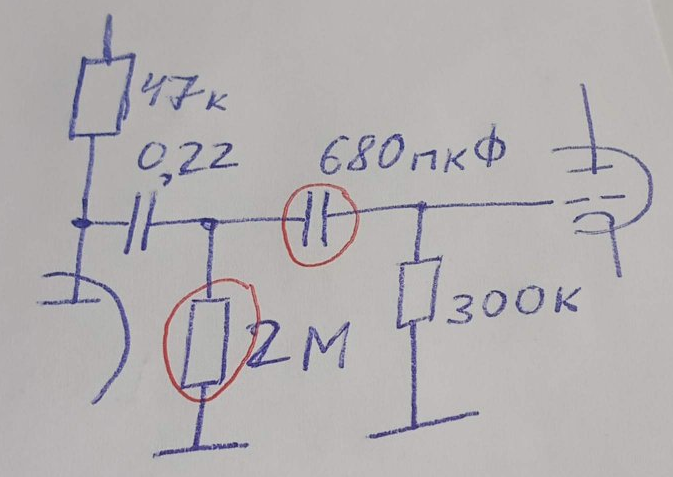 47к
0,22
680пкФ
2М
300к